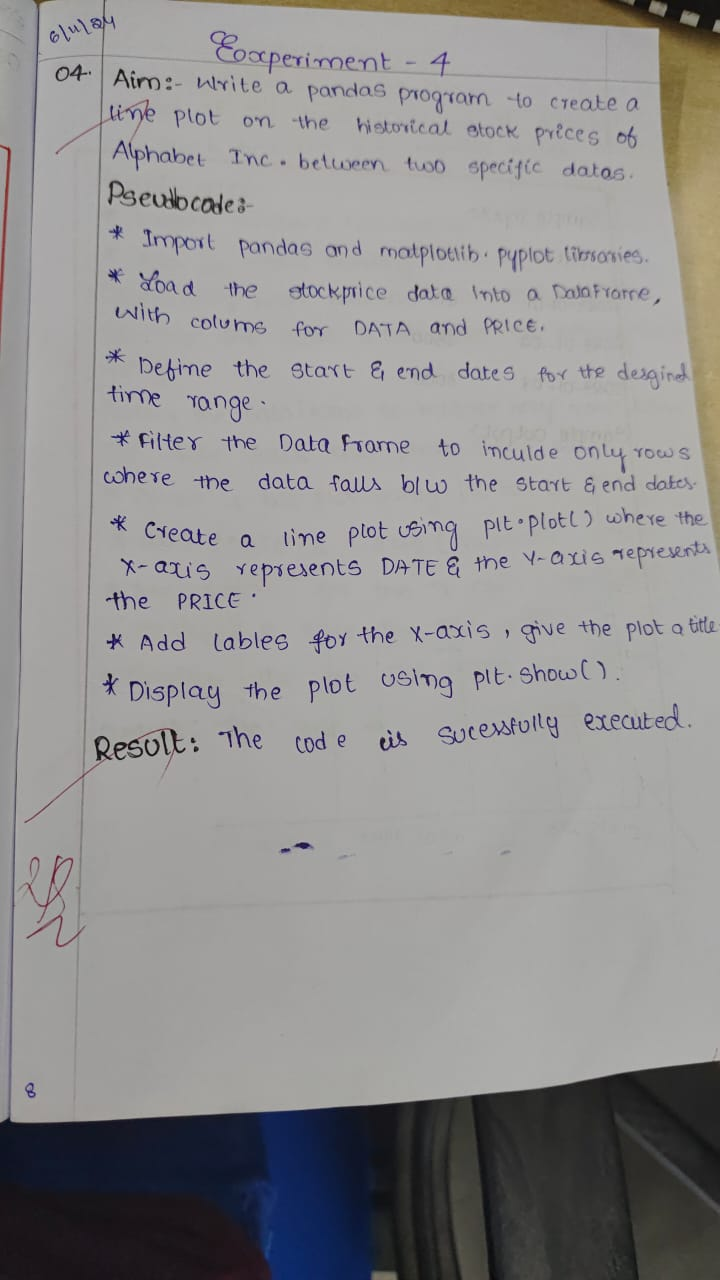 6/11/24
Experiment - 4
04. Aim:- Write a pandas program to create a
line plot on the historical stock prices of
Alphabet Inc. between two specific datas.
Pseudocode:-
* Import pandas and matplotlib. pyplot libraries.
* Load the stockprice data Into a DataFrame,
with colums for DATA and PRICE.
* Define the start & end dates for the desgined
time range.
* Filter the Data Frame to inculde only rows
where the data falls b/w the start & end dates.
* Create a line plot using plt.plot() where the
X-axis represents DATE & the Y-axis represents
the PRICE.
* Add lables for the X-axis, give the plot a title
* Display the plot using plt.show().
Result: The code is sucessfully executed.
8